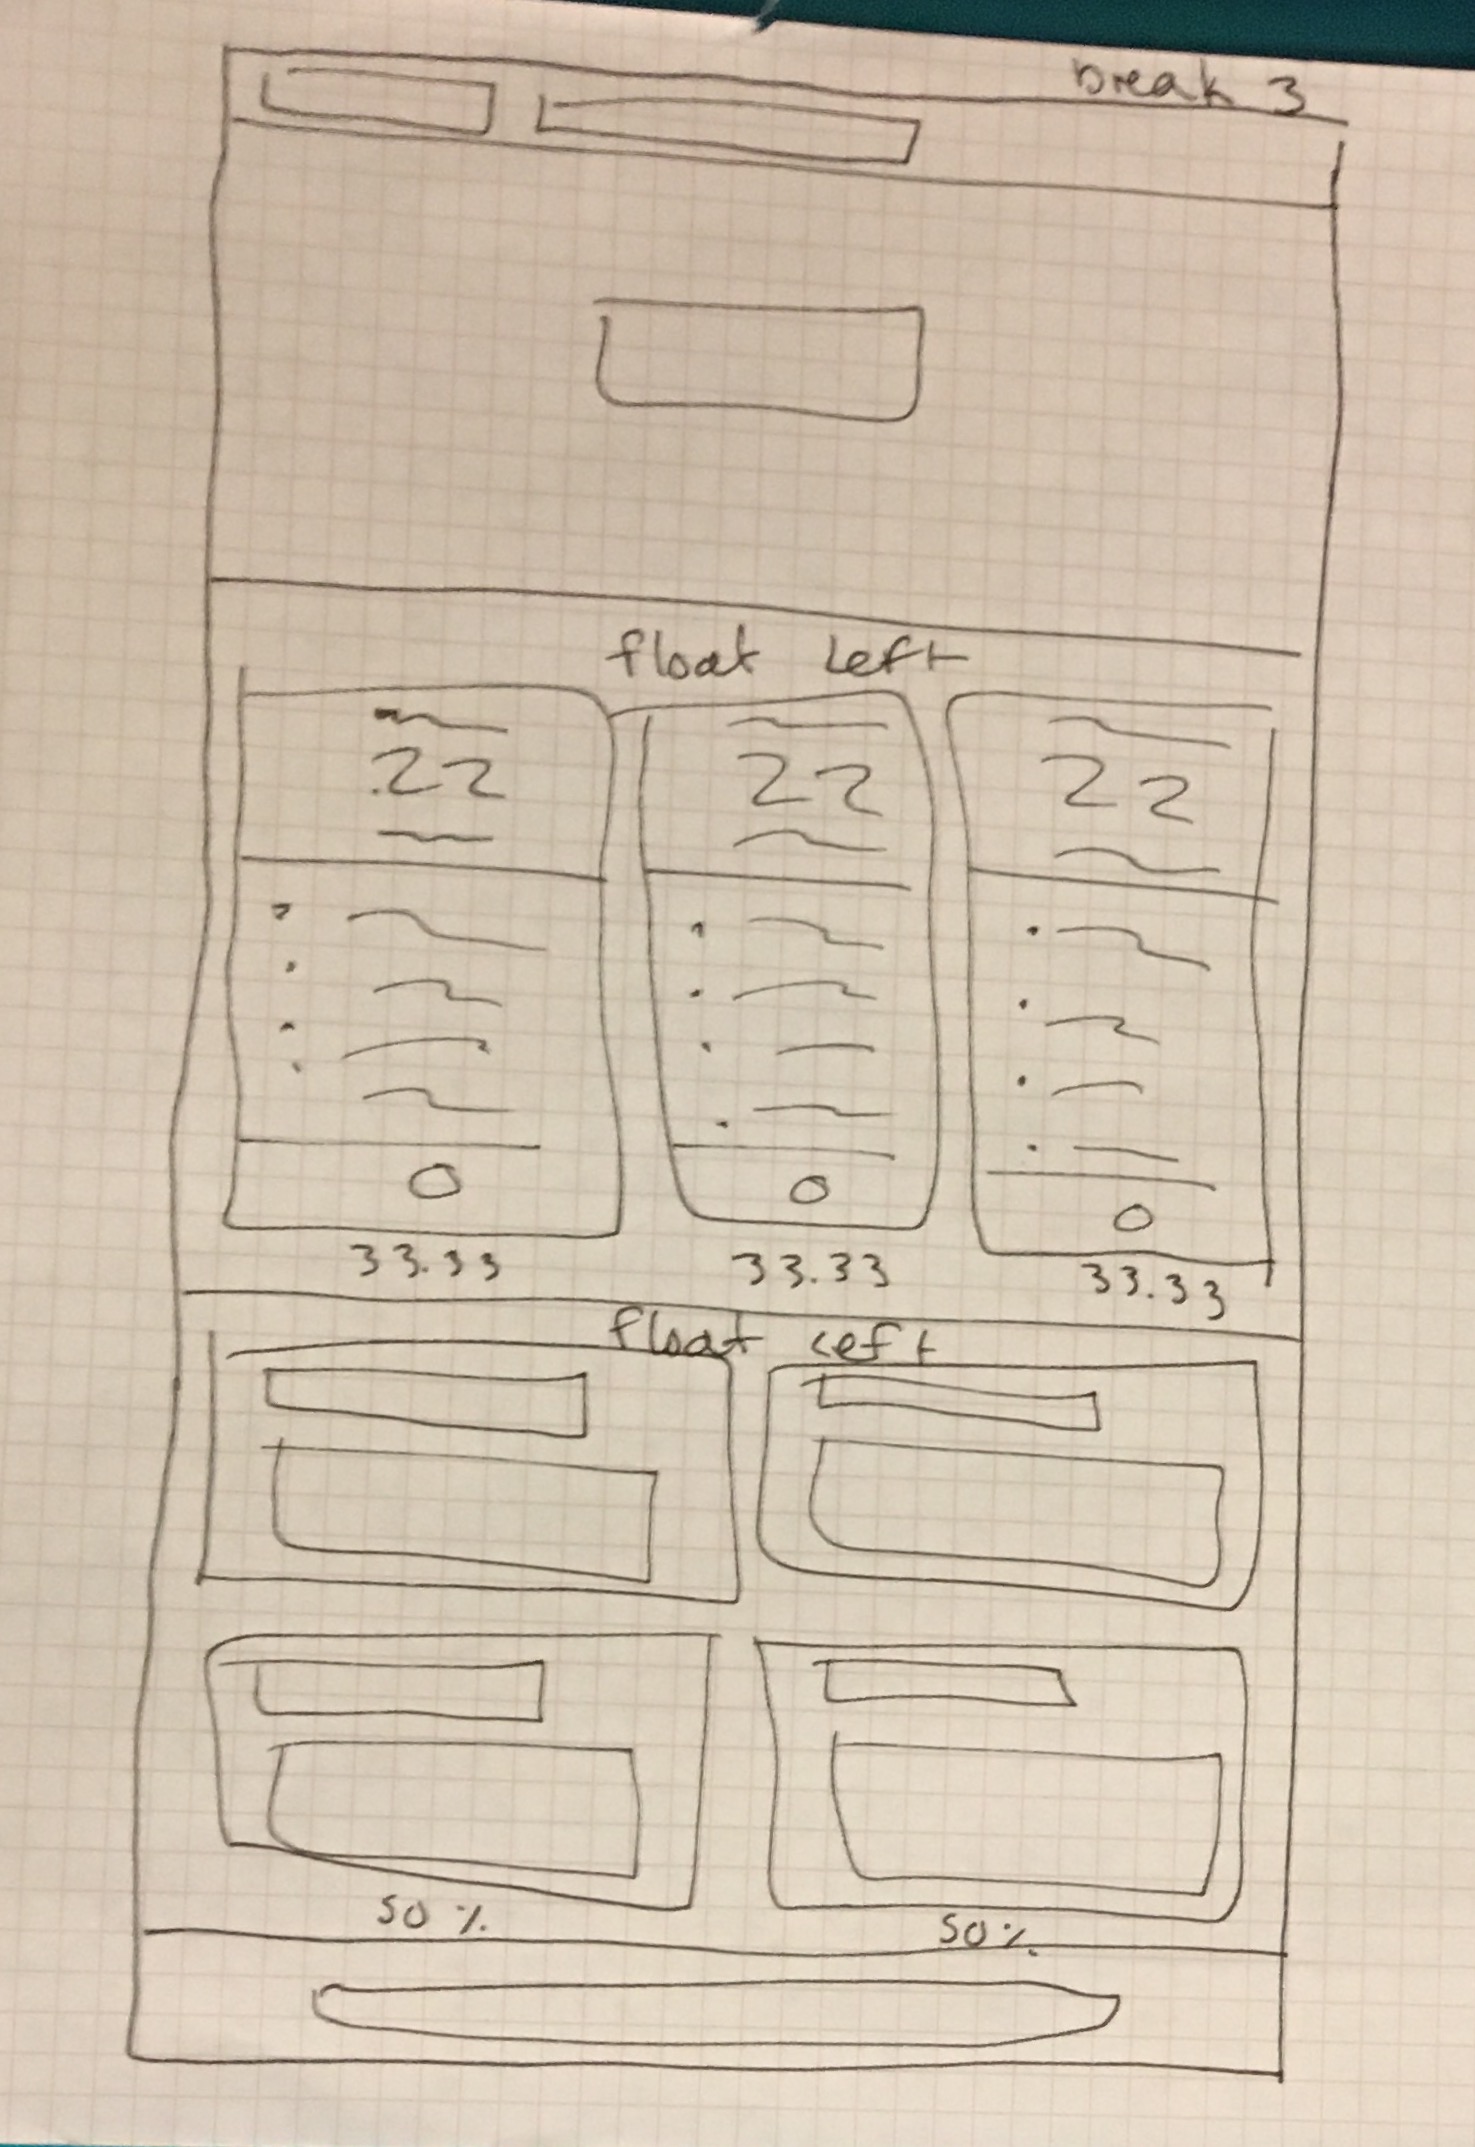 break 3
float left
22 22 22
33.33 33.33 33.33
float left
50% 50%